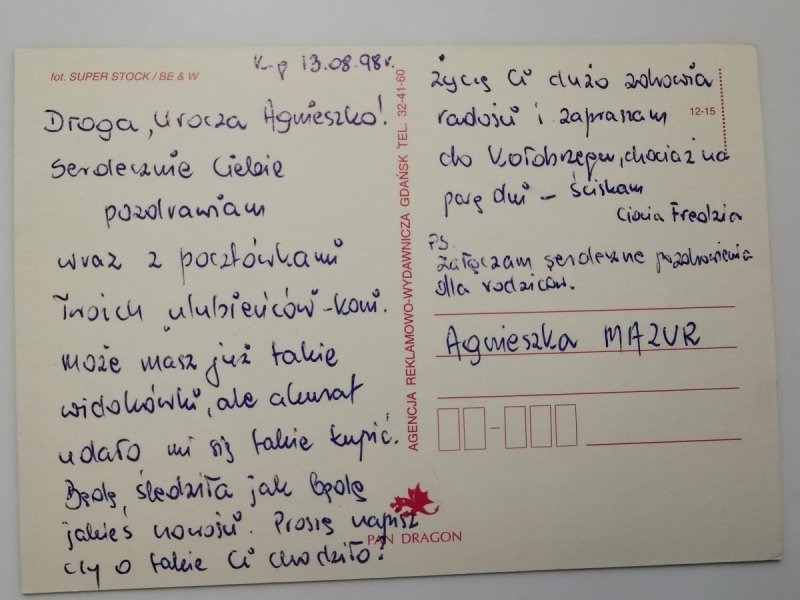 fot. SUPER STOCK / BE & W
K-g 13.08.98r.
Droga, Urocza Agnieszko!
Serdecznie Ciebie
pozdrawiam
wraz z pocztówkami
Twoich „ulubieńców-koni.
Może masz już takie
widokówki, ale akurat
udało mi się takie kupić.
Będę śledziła jak będę
jakieś nowości. Proszę napisz
czy o takie Ci chodziło?
PAN DRAGON
AGENCJA REKLAMOWO-WYDAWNICZA GDAŃSK TEL. 32-41-60
Życzę Ci dużo zdrowia
radości i zapraszam
do Kołobrzegu, chociaż na
parę dni – ściskam
Ciocia Fredzia
12-15
PS.
Załączam serdeczne pozdrowienia
dla rodziców.
Agnieszka MAZUR